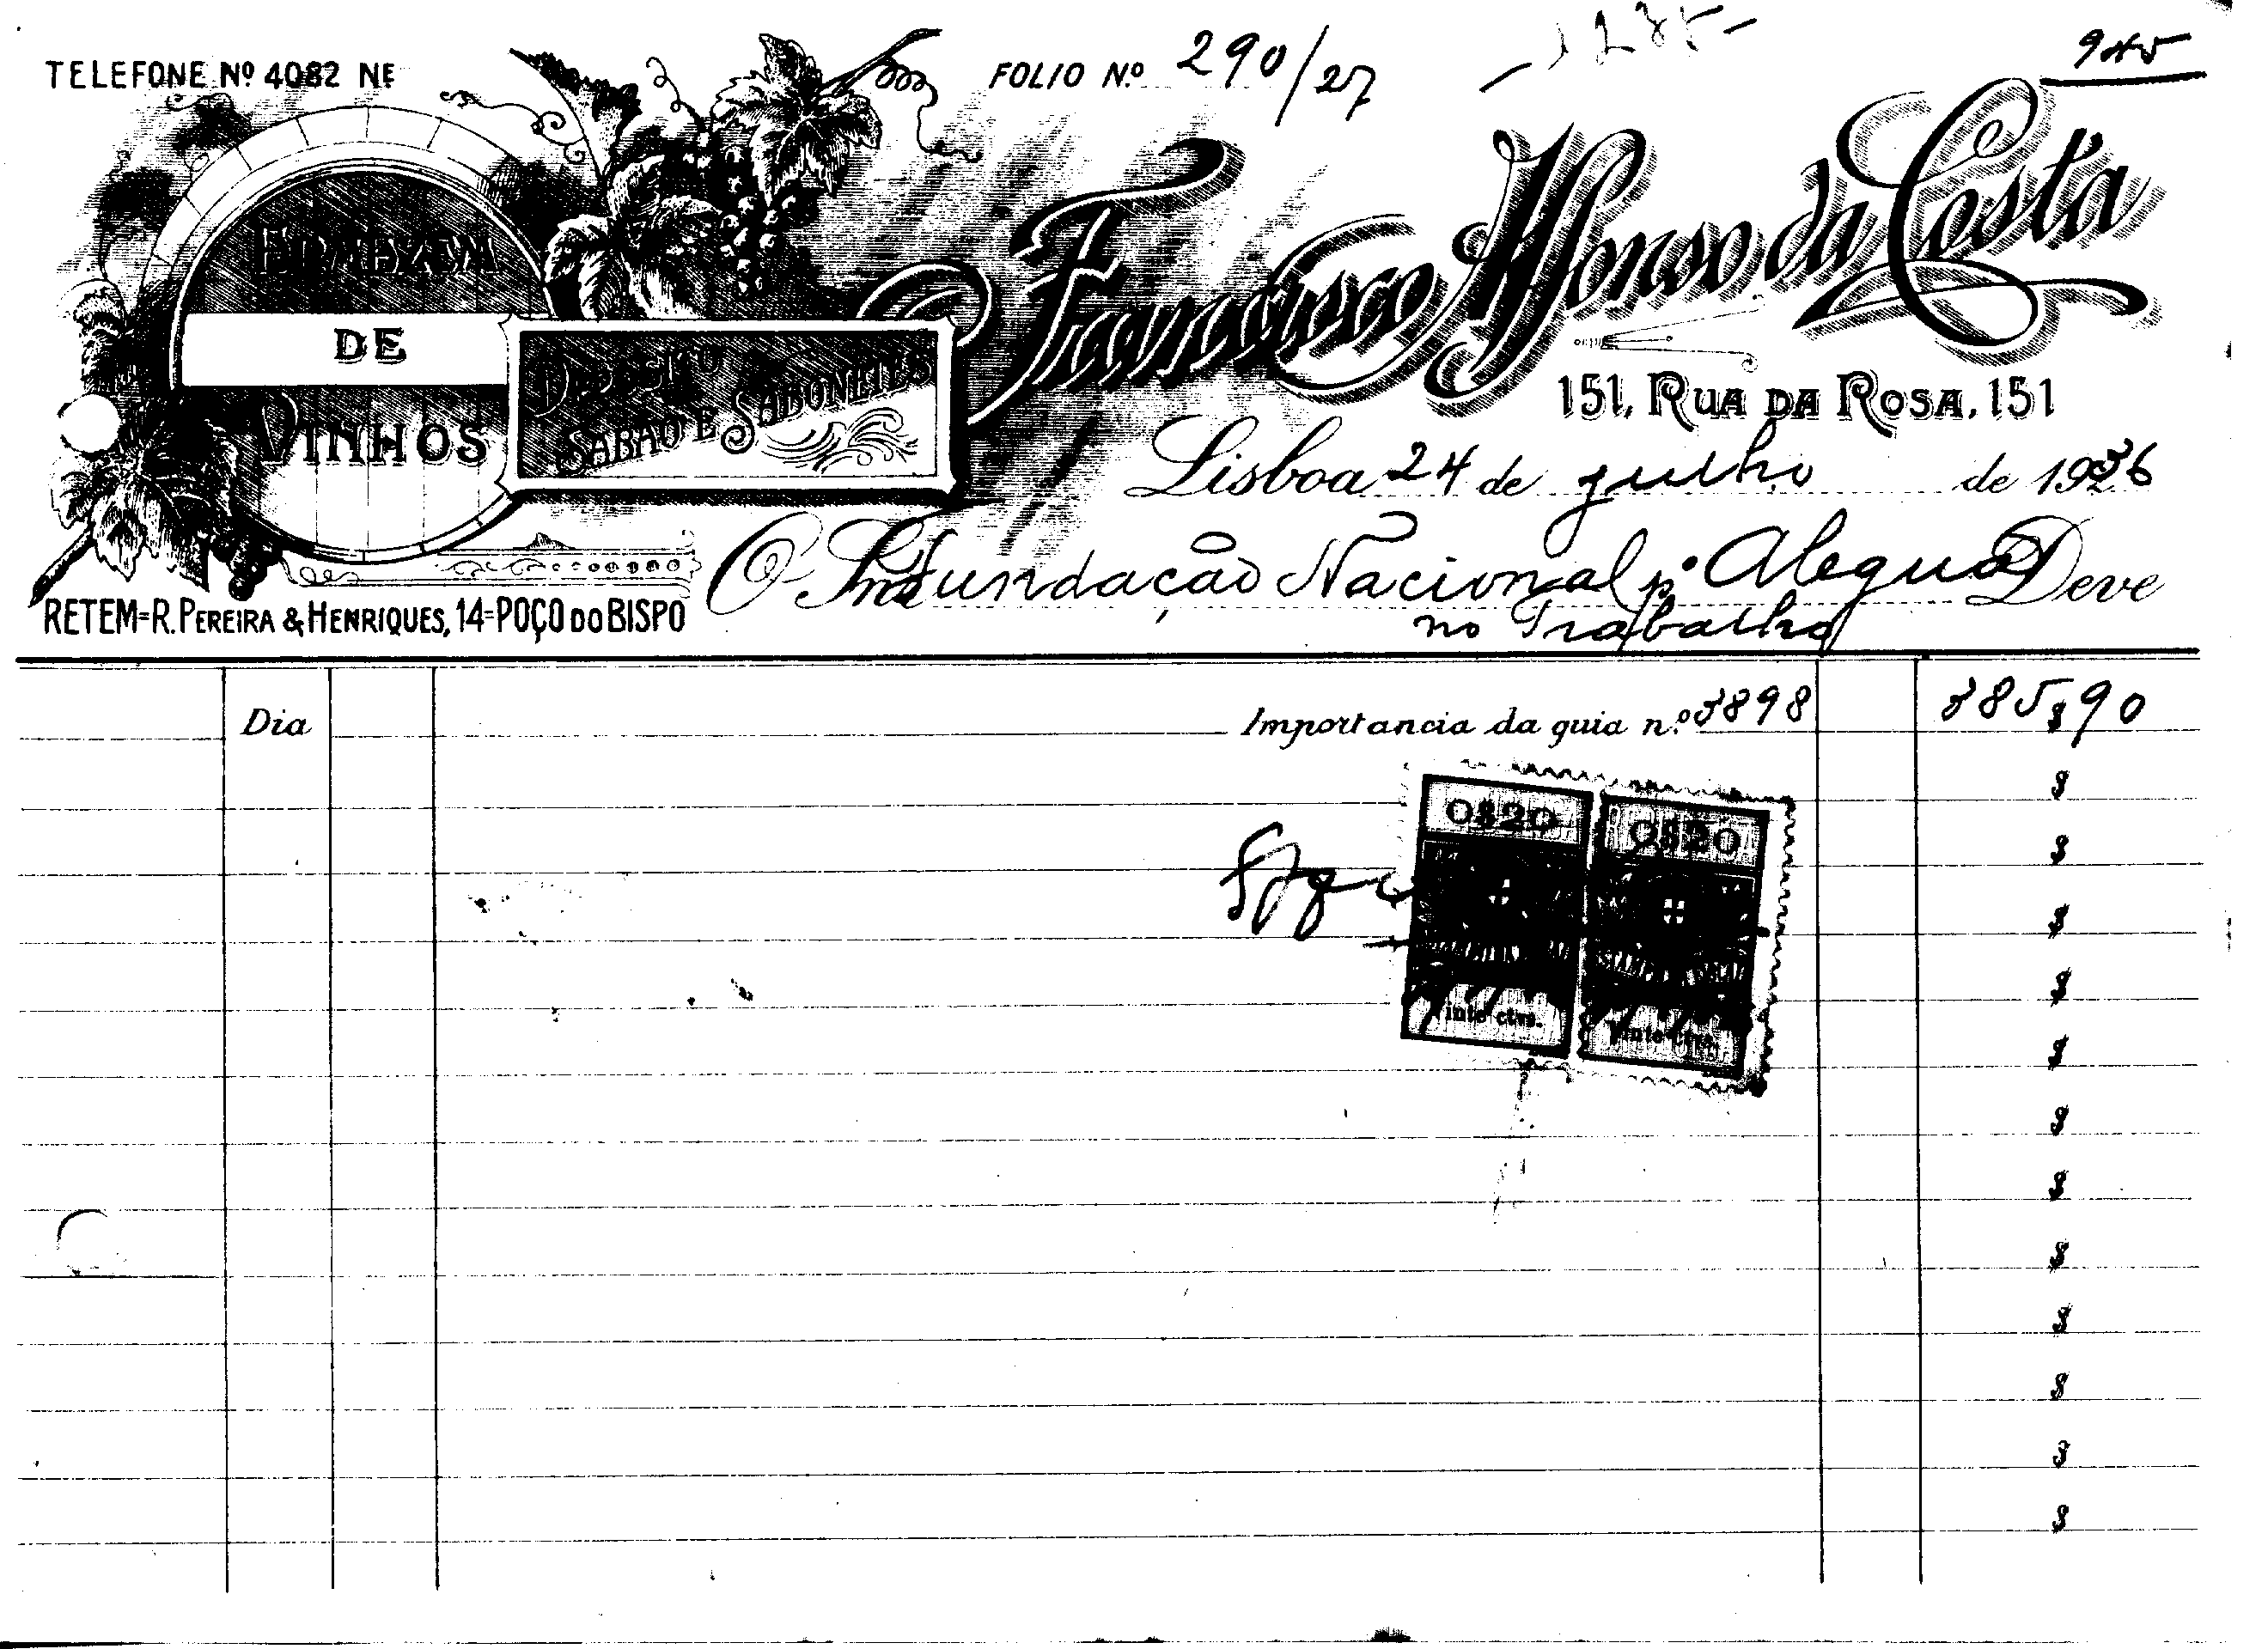 TELEFONE Nº 4082 NE
FOLIO Nº 290/27
945
ARMAZEM
DE
VINHOS
DEPOSITO
SABÃO E SABONETES
Francisco Affonso da Costa
151, RUA DA ROSA, 151
Lisboa 24 de julho de 1936
O Fundação Nacional p.ª Alegria Deve
no Trabalho
RETEM=R. PEREIRA & HENRIQUES, 14=POÇO DO BISPO
Dia Importancia da guia n.º 3898 385$90
$
0$20 0$20
$
$
ESTAMPILHA FISCAL ESTAMPILHA FISCAL
$
Vinte ctvs. Vinte ctvs.
$
$
$
$
$
$
$
$